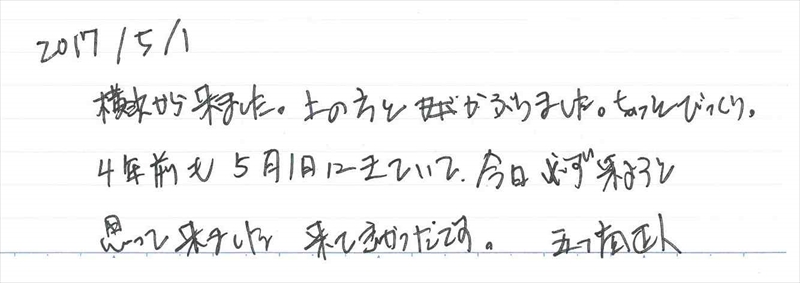 2017/5/1
横浜から来ました。上の方と かぶりました。ちょっとびっくり。
4年前も5月1日にきていて、今日必ず来ようと
思って来ました 来てよかったです。